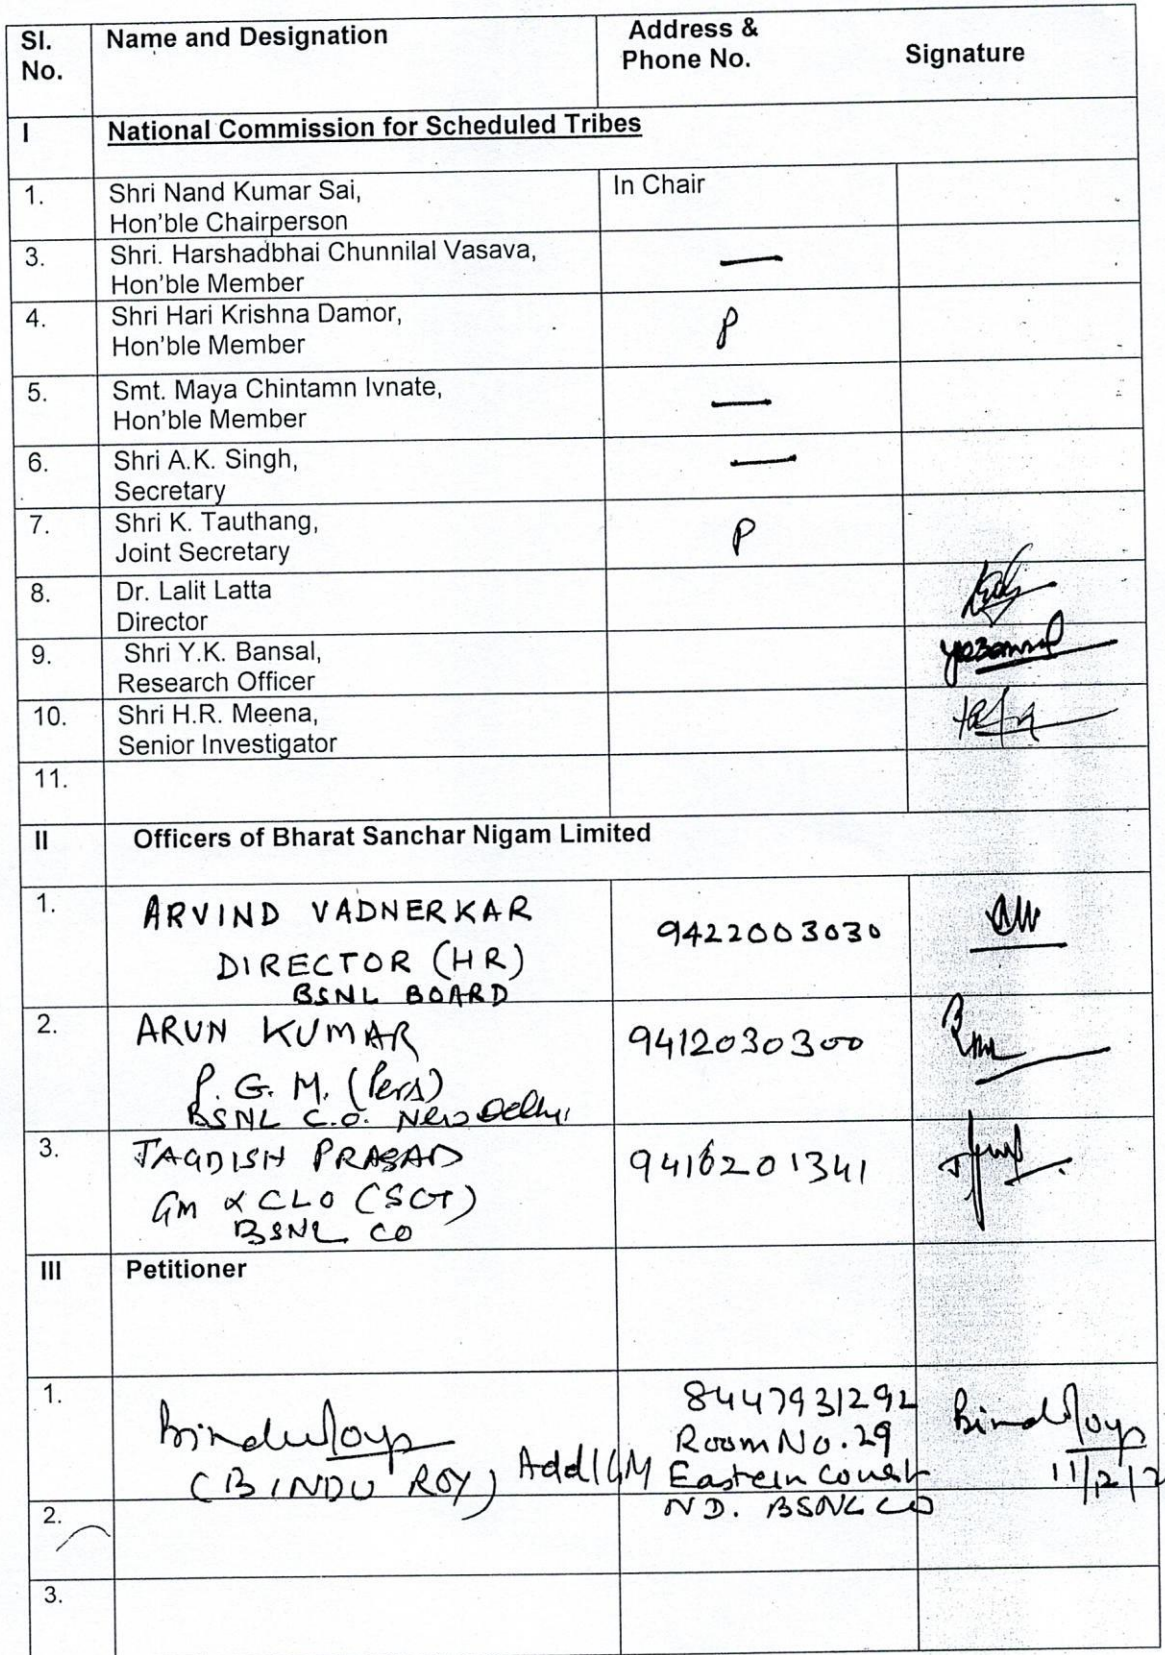 Sl. No. Name and Designation Address & Phone No. Signature
I National Commission for Scheduled Tribes
1. Shri Nand Kumar Sai, In Chair
Hon'ble Chairperson
3. Shri. Harshadbhai Chunnilal Vasava, —
Hon'ble Member
4. Shri Hari Krishna Damor, P
Hon'ble Member
5. Smt. Maya Chintamn Ivnate, —
Hon'ble Member
6. Shri A.K. Singh, —
Secretary
7. Shri K. Tauthang, P
Joint Secretary
8. Dr. Lalit Latta
Director
9. Shri Y.K. Bansal,
Research Officer
10. Shri H.R. Meena,
Senior Investigator
11.
II Officers of Bharat Sanchar Nigam Limited
1. ARVIND VADNERKAR 9422003030
DIRECTOR (HR)
BSNL BOARD
2. ARUN KUMAR 9412030300
P. G. M. (Pers)
BSNL C.O. New Delhi
3. JAGDISH PRASAD 9416201341
GM & CLO (SCT)
BSNL CO
III Petitioner
1. Bindu Roy 8447931292 Bindu Roy
(BINDU ROY) Addl GM Room No. 29
Eastern Court 11/12/2
ND. BSNL CO
2.
3.